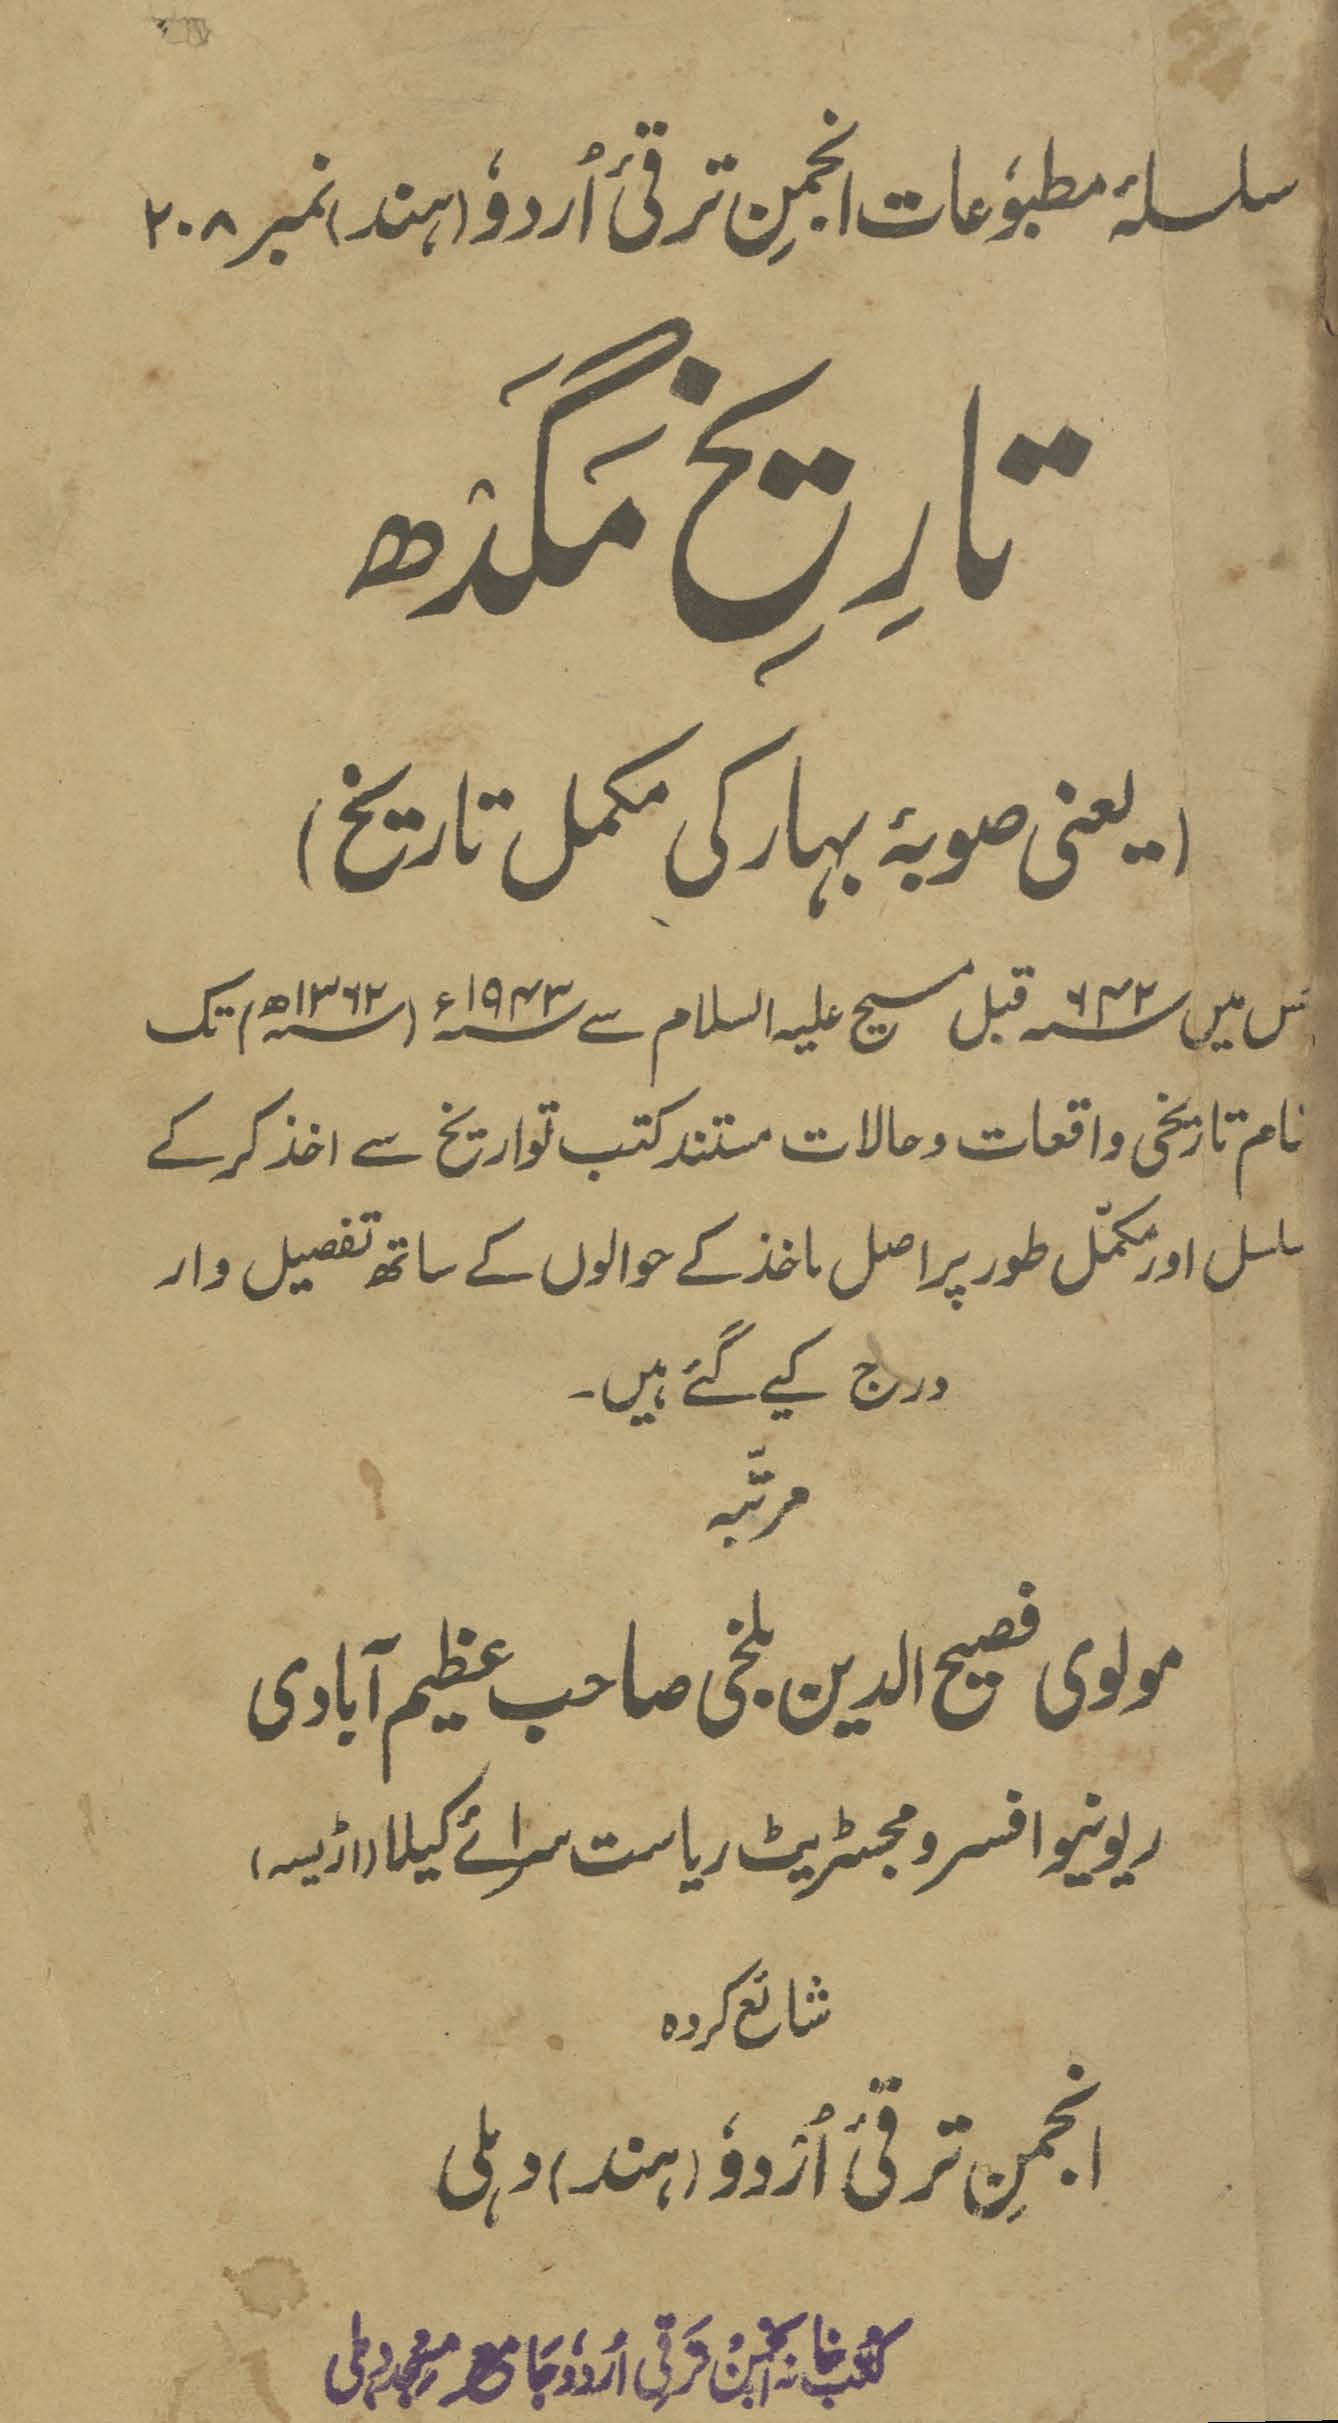 سلسلۂ مطبوٗعات انجمنِ ترقیٔ اُردوٗ (ہند) نمبر ۲۰۸
تارِیِخ مَگَدْھ
(یعنی صوبۂ بہار کی مکمل تاریخ)
میں ۶۴۲؁ قبل مسیح علیہ السلام سے ۱۹۴۳؁ء (۱۳۶۲؁ھ) تک
تاریخی واقعات و حالات مستند کتب تواریخ سے اخذ کر کے
اور مکمّل طور پر اصل ماخذ کے حوالوں کے ساتھ تفصیل وار
درج کیے گئے ہیں۔
مرتّبہ
مولوی فصیح الدین بلخی صاحب عظیم آبادی
ریونیو افسر و مجسٹریٹ ریاست سرائے کیلا (اڑیسہ)
شائع کردہ
انجمنِ ترقیٔ اُرْدوٗ (ہند) دہلی
کتب خانہ انجمن ترقی اُردوٗ جامع مسجد دہلی